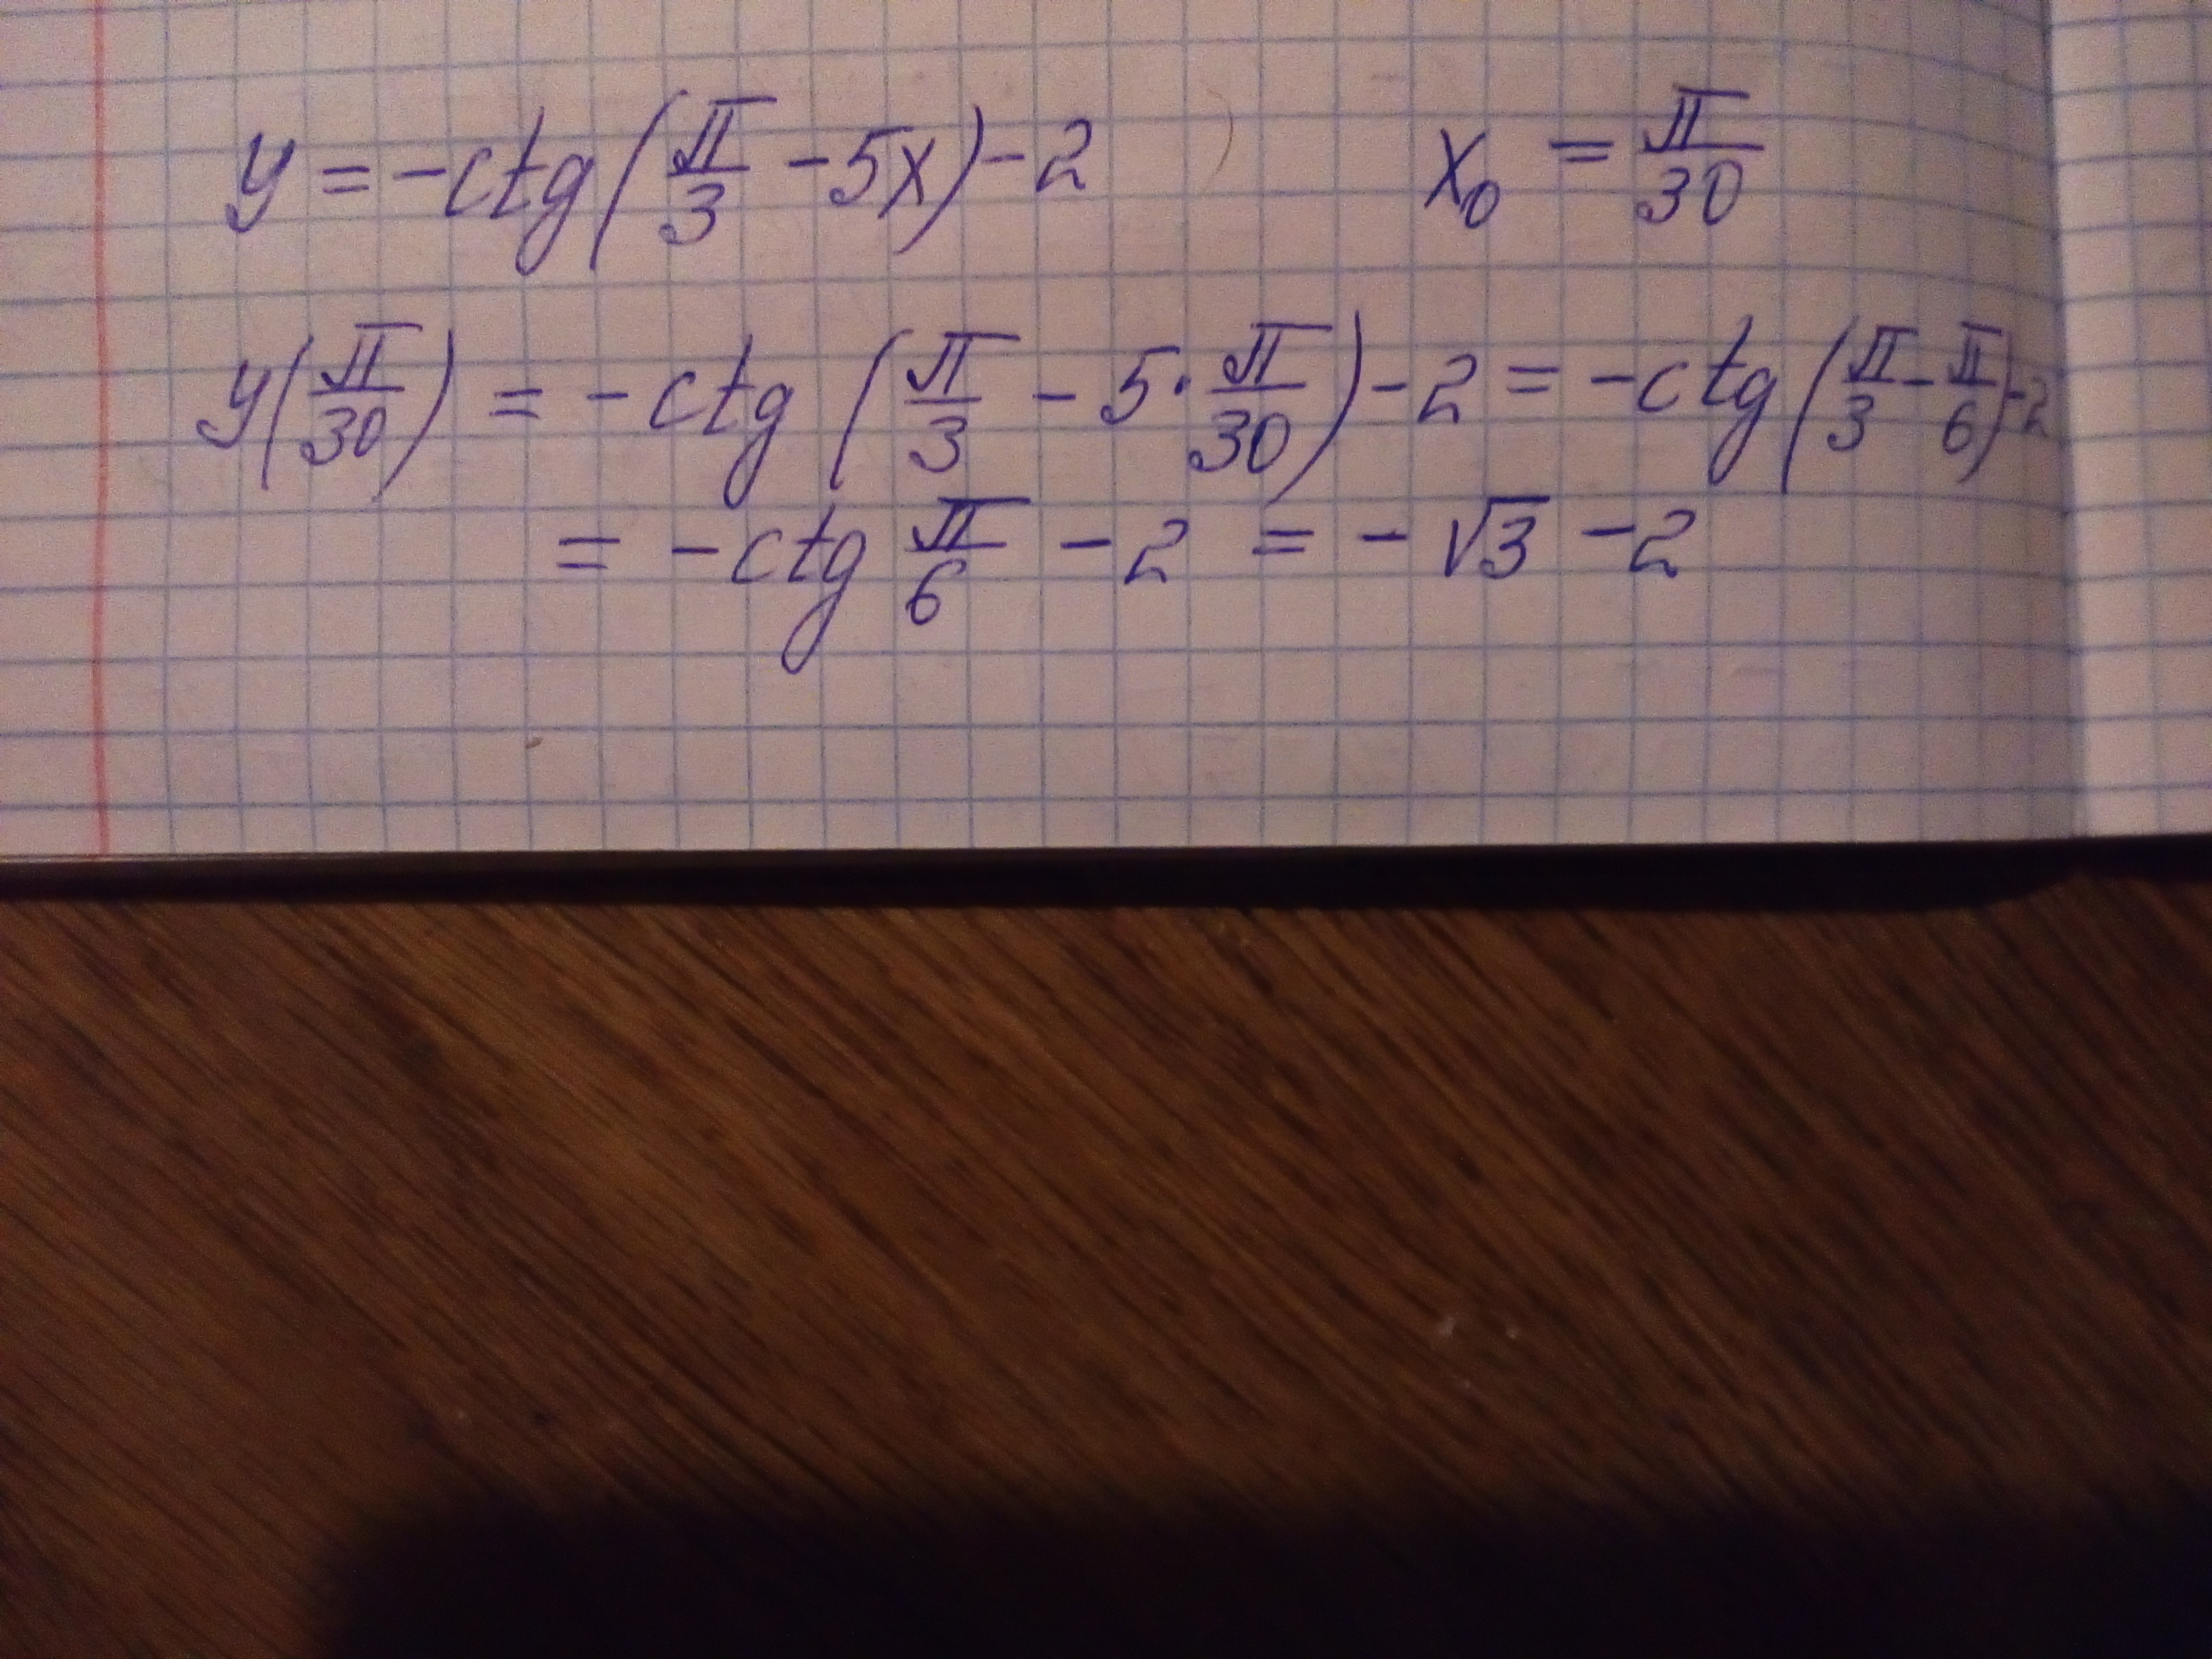 y = -ctg(π/3 - 5x) - 2 x₀ = π/30
y(π/30) = -ctg(π/3 - 5·π/30) - 2 = -ctg(π/3 - π/6) - 2
= -ctg π/6 - 2 = -√3 - 2